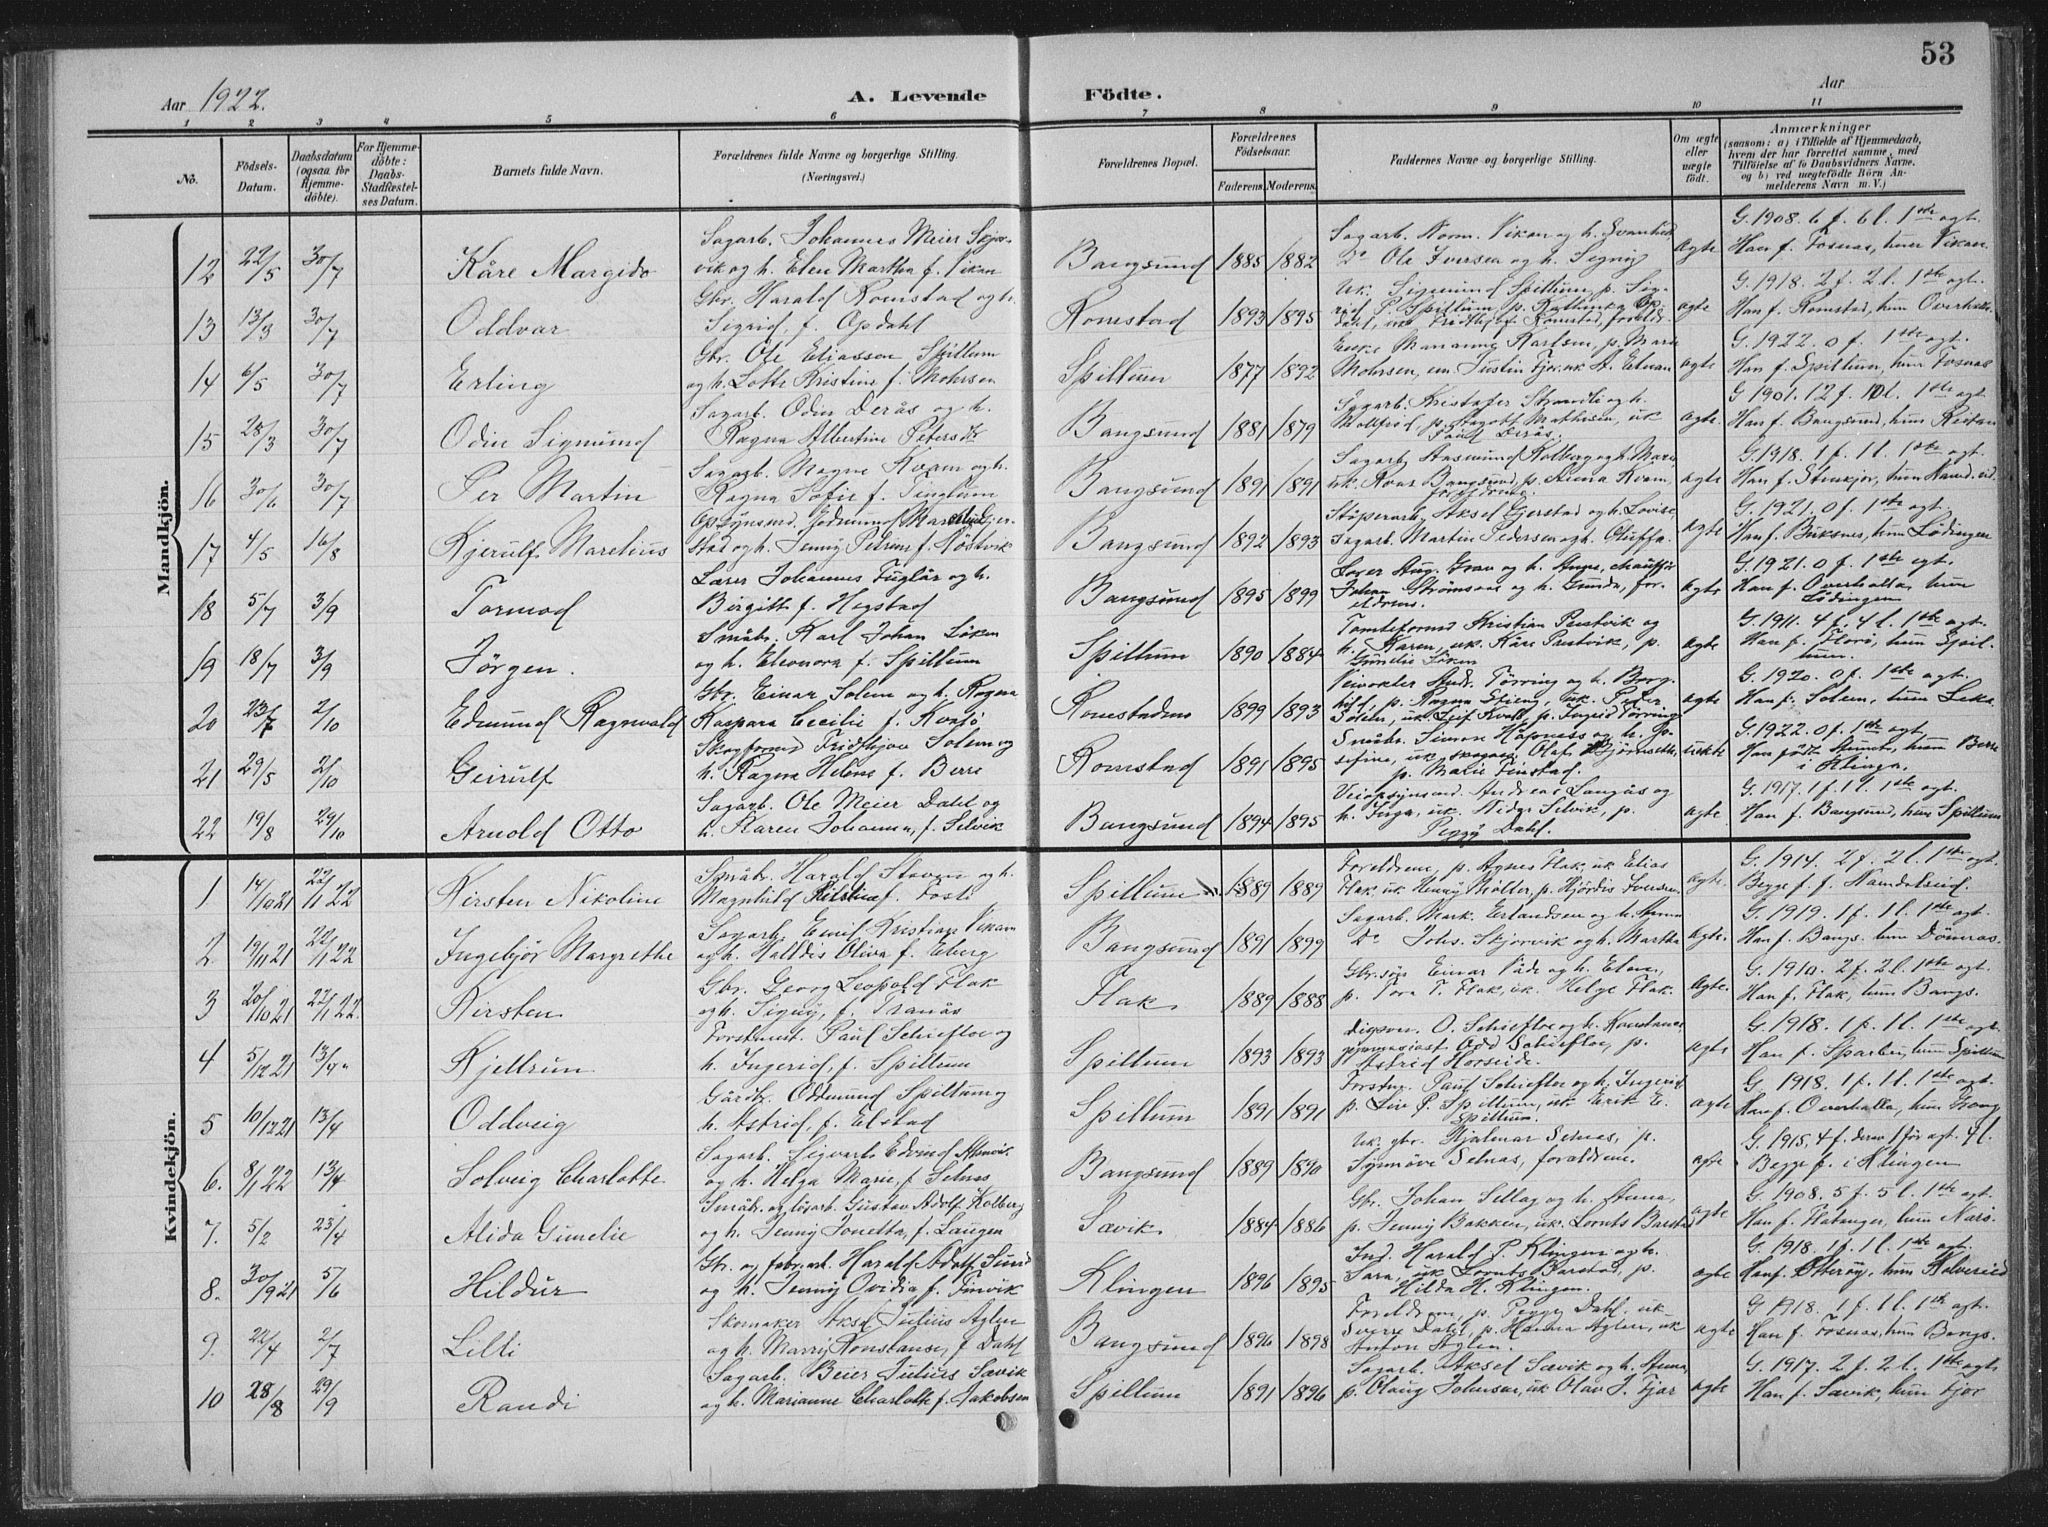 53
Aar 1922.
A. Levende Födte.
Aar
1 2 3 4 5 6 7 8 9 10 11
No.
Födsels-Datum.
Daabsdatum (ogsaa for Hjemme-döbte).
For Hjemme-döbte: Daabs-Stadfæstel-ses Datum.
Barnets fulde Navn.
Forældrenes fulde Navne og borgerlige Stilling. (Næringsvei.)
Forældrenes Bopæl.
Forældrenes Födselsaar.
Faderens. Moderens.
Faddernes Navne og borgerlige Stilling.
Om ægte eller uægte födt.
Anmærkninger
(saasom: a) i Tilfælde af Hjemmedaab, hvem der har forrettet samme, med Tilföielse af to Daabsvidners Navne. og b) ved uægtefödte Börn An-melderens Navn m. V.)
Mandkjön.
12 22/5 30/7 Kåre Margido
Sagarb. Johannes Meier Skjør-
vik og h. Elen Martha f. Vikan
Bangsund 1885 1882
Sagarb. Norm. Vikan og h. Svanhild
Do Ole Iversen og h. Signy
ægte
G. 1908. 6 f. 6 l. 1ste ægt.
Han f. Fosnas, hun Vikan.
13 13/3 30/7 Oddvar
Gbr. Harald Romstad og h.
Sigrid, f. Opdahl
Romstad 1893 1895
Uk. Sigmund Spillum, p. Sig-
rid P. Spillum, p.
ægte
G. 1918. 2 f. 2 l. 1ste ægt.
Han f. Romstad, hun Overhalla.
14 6/5 30/7 Erling
Gbr. Ole Eliassen Spillum
og h. Lotte Kristine f. Mohrsen
Spillum 1877 1892
Enke Marianne Karlsen, p. Marie
Mohrsen, em. Justin Fjor, uk A. Elnan
ægte
G. 1922. 0 f. 1ste ægt.
Han f. Spillum, hun Fosnas
15 28/3 30/7 Odin Sigmund
Sagarb. Odin Derås og h.
Ragna Albertine Petersdr
Bangsund 1881 1879
Sagarb. Kristofer Strandli og h.
Mathisen, uk
Paul Derås.
ægte.
G 1901. 12 f. 10 l. 1ste ægt.
Han f. Bangsund, hun
16 30/6 30/7 Per Martin
Sagarb. Magne Kvam og h.
Ragna Sofie f. Tinglum
Bangsund 1891 1891
Sagarb. Aasmund Kolberg og h. Marie,
uk. Roar Bangsund, p. Anna Kvam,
foreldrene.
ægte
G. 1918. 1 f. 1 l. 1ste ægt.
Han f. Stenkjær, hun Namd.eid
17 4/5 16/8 Kjerulf Marelius
Opsynsmd. Godmund Marelius Gjer-
stad og h. Jenny Petrine f. Nöstvik
Bangsund 1892 1893
Støperarb. Aksel Gjerstad og h. Lovise,
Sagarb. Martin Pedersen og h. Oluffa.
ægte
G. 1921. 0 f. 1ste ægt.
Han f. Buksnes, hun Lødingen
18 5/7 3/9 Tormod
Lærer Johannes Fuglår og h.
Birgitt f. Hegstad
Bangsund 1895 1899
Lærer Aug. Grav og h. Anne, chauffør
Johan Strømsem og h. Gunda, for-
eldrene.
ægte
G. 1921. 0 f. 1ste ægt.
Han f. Overhalla hun
Lødingen
19 18/7 3/9 Jörgen.
Småbr. Karl Johan Löken
og h. Eleonora f. Spillum
Spillum 1890 1884
Tomteformd Kristian Prestvik og
h. Karen, uk. Kåre Prestvik, p.
Gunelie Löken
ægte
G. 1911. 4 f. 4 l. 1ste ægt.
Han f. Florö, hun Spil-
lum.
20 23/7 2/10 Edmund Ragnvald
Gbr. Einar Solem og h. Ragna
Kaspara Cecilie f. Kvalö
Romstaden 1899 1893
Veivokter Andr. Tørring og h. Borg-
hild, p. Ragna Stieng, uk. Peter
Solem, uk. Leif Kvalö, p. Ingrid Tørring
ægte
G. 1920. 0 f. 1ste ægt.
Han f. Solem, hun Leka.
21 29/5 2/10 Geirulf
Skogformd Fridthjov Solem og
h. Ragna Helene f. Berre
Romstad 1891 1895
Småbr. Simon Håpnes og h. Jo-
sefine, uk. Olaf Bjørnseth
p. Malie Finstad.
uekte
G. 1922. 0 f. 1ste ægt.
Han født hun Berre
i Klinga.
22 19/8 29/10 Arnold Otto
Sagarb. Ole Meier Dahl og
h. Karen Johanna, f. Selvik
Bangsund 1894 1895
Veiopsynsmd. Andreas Langås og
h. Inga, uk. Vidar Selvik, p.
Peggy Dahl.
ægte
G. 1917. 1 f. 1 l. 1ste ægt.
Han f. Bangsund, hun Spillum
Kvindekjön.
1 14/10 21 22/1 22 Kirsten Nikoline
Småbr. Harald Staven og h.
Magnhild f. Fosli
Spillum 1889 1889
Foreldrene, p. Agnes Flak, uk Elias
Flak, uk Henny Møller, p. Hjördis Ivensen.
ægte.
G. 1914. 2 f. 2 l. 1ste ægt.
Begge f. f. Namdalseid.
2. 19/11 21 22/1 22 Ingebjör Margrethe
Sagarb. Emil Kristian Vikan
og h. Halldis Oliva f. Eberg
Bangsund 1891 1899
Sagarb. Mark. Erlandsen og h. Anna
Do Johs. Skjørvik og h. Martha
ægte.
G. 1919. 1 f. 1 l. 1ste ægt.
Han f. Bangs. hun Dönnas.
3 20/10 21 22/1 22. Kirsten
Gbr. Georg Leopold Flak
og h. Signy, f. Tranås
Flak 1889 1888
Gbr.søn Einar Våde og h. Elen,
p. Tora T. Flak, uk. Helge Flak.
ægte.
G. 1910. 2 f. 2 l. 1ste ægt.
Han f. Flak, hun Bangs.
4 5/12 21 13/4 " Kjellrun
Forstmst. Paul Schiefloe og
h. Ingerid, f. Spillum
Spillum 1893 1893
O. Schiefloe og h. Konstanse
gymnasiast Odd Schiefloe, p.
Astrid Horseide.
ægte
G. 1918. 1 f. 1 l. 1ste ægt.
Han f. Sparbu, hun Spillum
5 10/12 21 13/4 Oddveig
Gårdbr. Oddmund Spillum og
h. Astrid, f. Elstad
Spillum 1891 1891
Forstm. Paul Schiefloe og h. Ingerid
p. Liv P. Spillum, uk. Erik E.
Spillum.
ægte
G. 1918. 1 f. 1 l. 1ste ægt.
Han f. Overhalla, hun Grong
6. 8/1 22 13/4 Solveig Charlotte
Sagarb. Sigvart Edvind
og h. Helga Marie, f. Selnes
Bangsund 1889 1890
Uk. gbr. Hjalmar Selnas, p.
Synnöve Selnas, forældrene.
ægte
G. 1915, 4 f. derav 1 før ægt. 4 l.
Begge f. i Klingen
7. 5/2 23/4 Alida Gunelie
Småbr. og løsarb. Gustav Adolf Kolberg
og h. Jenny Jonetta, f. Laugen
Sævik 1884 1886
Gbr. Johan Sellæg og h. Anna,
p. Jenny Bakken, uk. Lornts Barstad
ægte
G. 1908. 5 f. 5 l. 1ste ægt.
Han f. Flatanger, hun Narö.
8. 30/9 21 5/6 Hildur
Gbr. og fabr.arb. Harald Adolf Sund
og h. Jenny Ovidia f. Finvik
Klingen 1896 1895
Ind. Harald P. Klingen og h.
Sara, uk Lornts Barstad, p.
Hilda H. Klingen.
ægte
G. 1918. 1 f. 1 l. 1ste ægt.
Han f. Otterøy, hun Kolvereid
9. 22/4 2/7 Lilli
Skomaker Aksel Julius Aglen
og h. Marry Konstanse, f. Dahl
Bangsund 1896 1898
Foreldrene, p. Peggy Dahl, uk.
Sverre Dahl, p. Hanna Aglen, uk
Anton Aglen.
ægte
G. 1918. 1 f. 1 l. 1ste ægt.
Han f. Fosnas, hun Bangs.
10 28/8 29/9 Randi
Sagarb. Beier Julius Sævik
og h. Marianne Charlotte f. Jakobsen
Spillum 1891 1896
Sagarb. Aksel Sævik og h. Anna,
p. Olaug Johnsen, uk Olav J. Fjær
ægte
G. 1917. 2 f. 2 l. 1ste ægt.
Han f. Sævik, hun Fjør